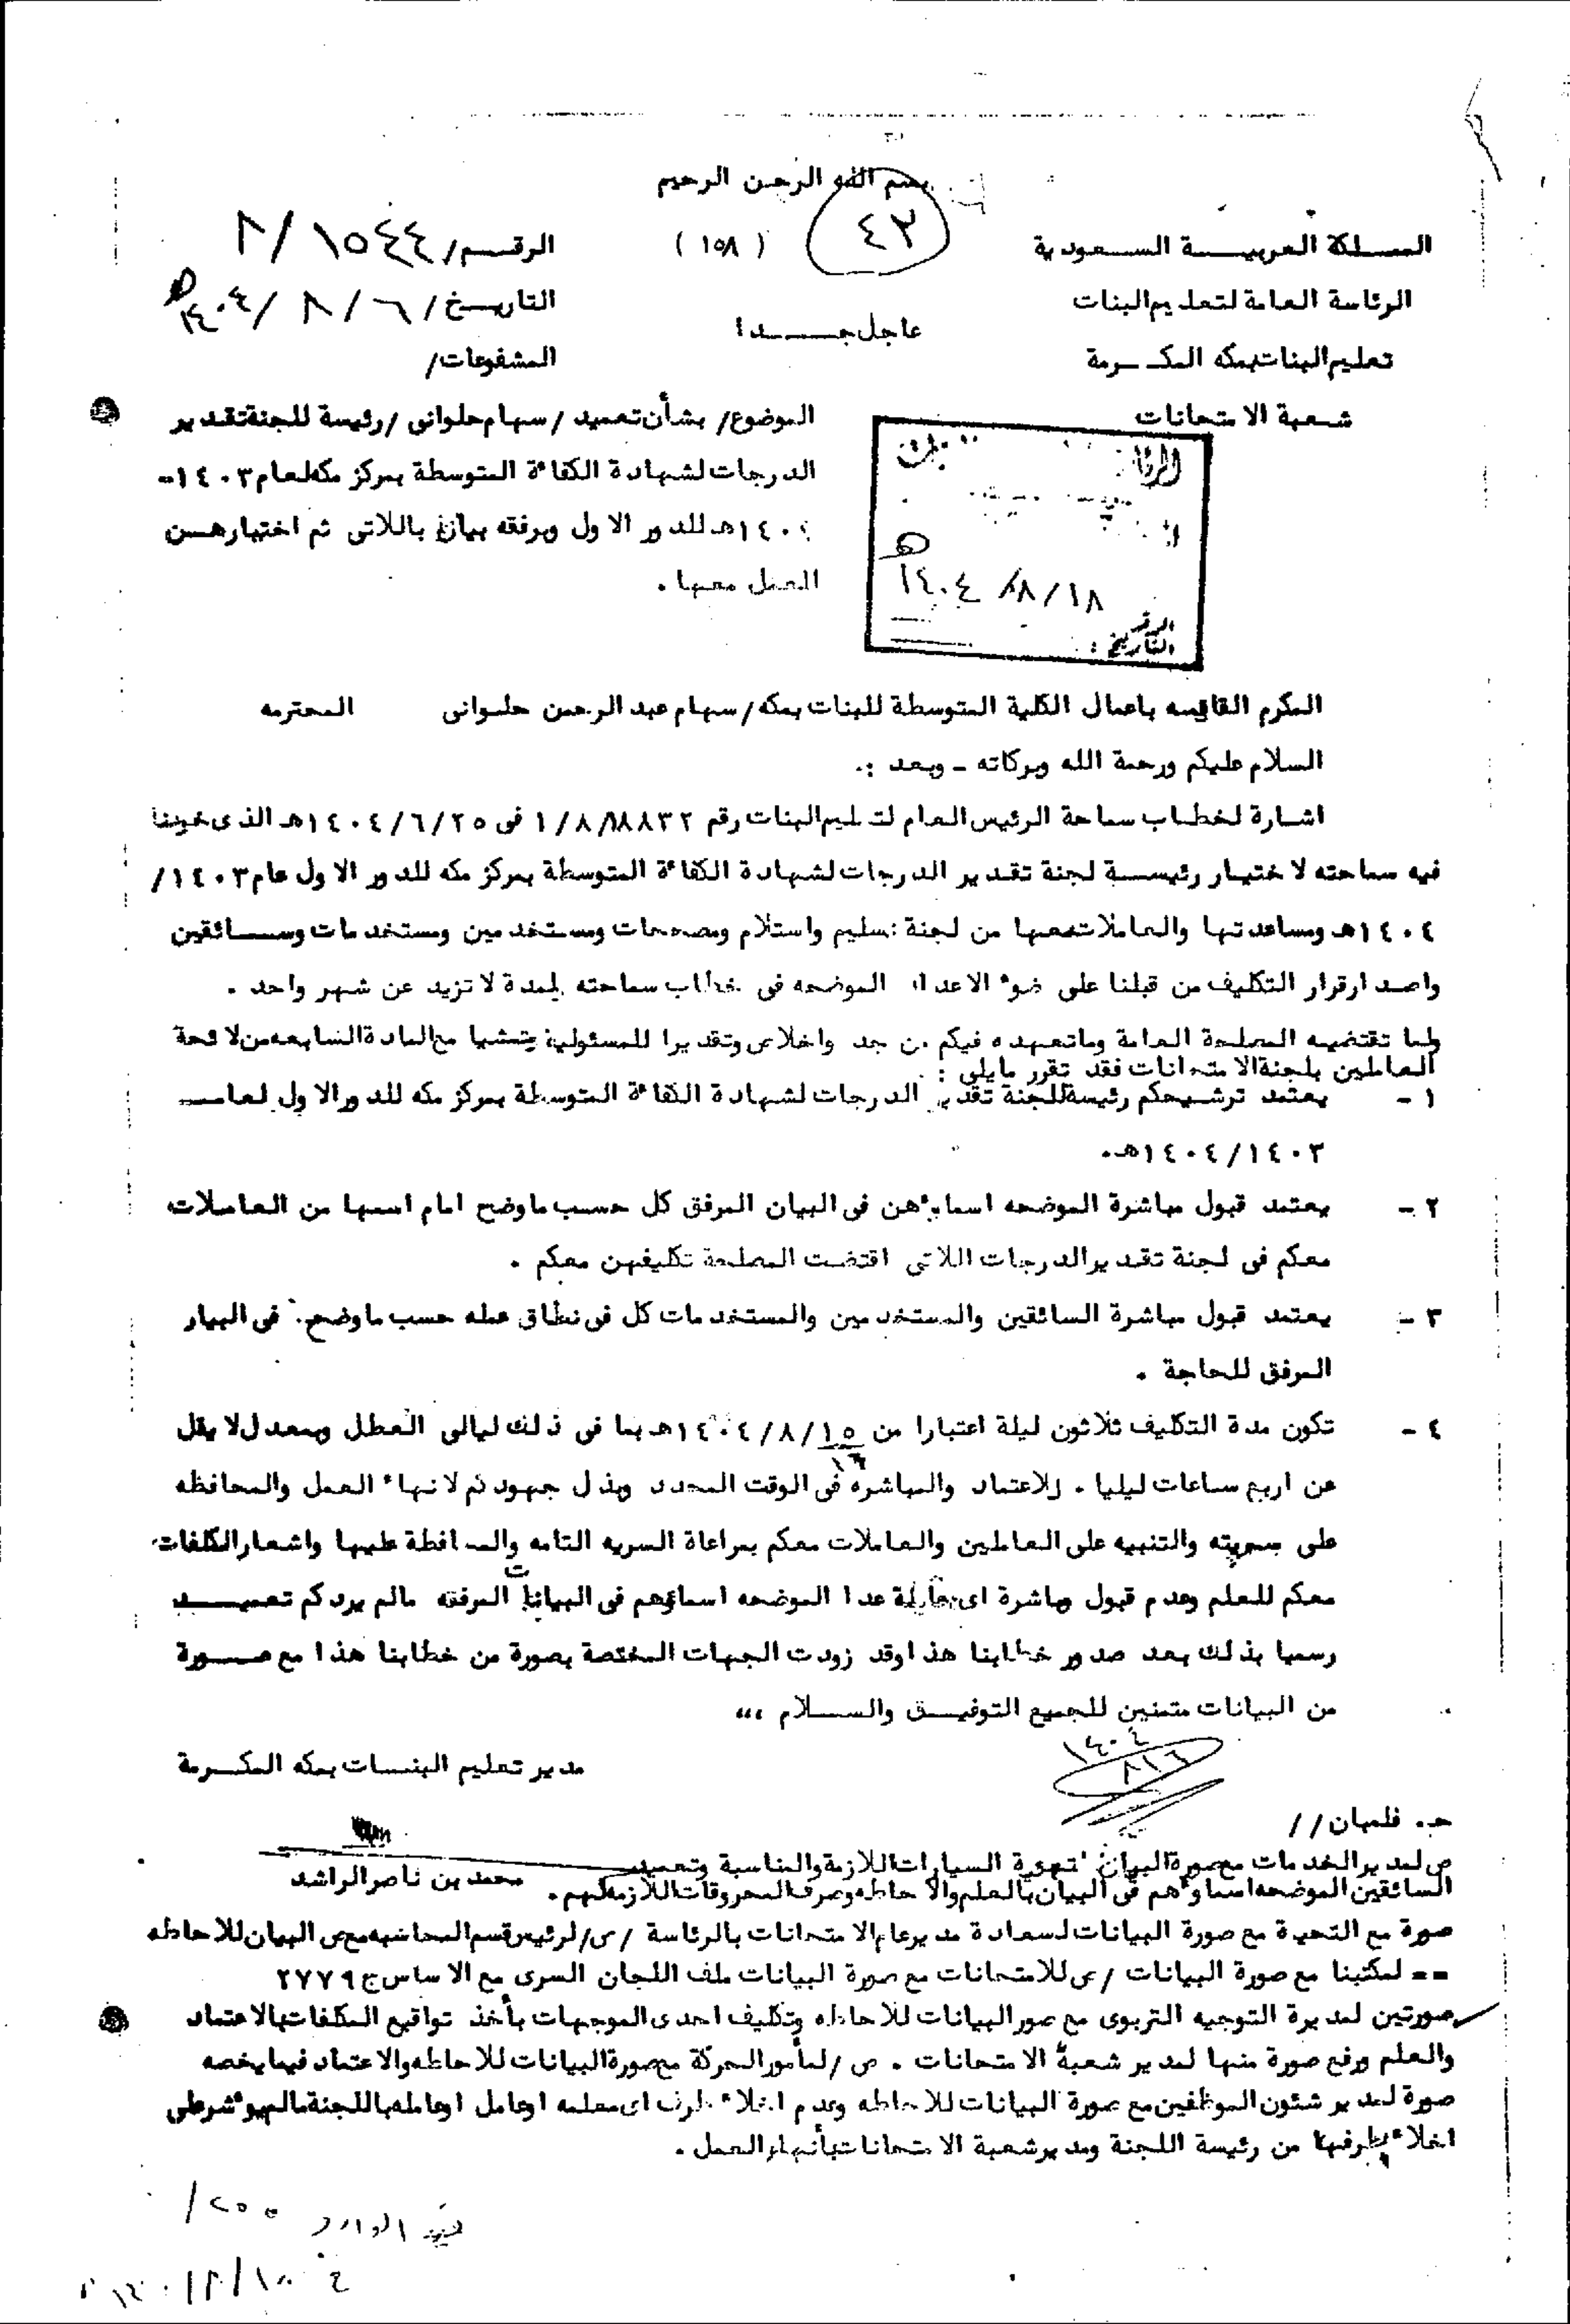 بسم الله الرحمن الرحيم
المملكة العربيـــة الســعودية
٤٣
( ١٥٨ )
الرقــم/ ٨/١٥٤٤
الرئاسة العامة لتعليم البنات
عاجل جــــدا
التاريــخ/ ٦ / ٨ / ١٤٠٤ هـ
تعليم البنات بمكه المكــرمة
المشفوعات/
شـعبة الامتحانات
الموضوع/ بشأن تعميد /سهام حلوانى /رئيسة للجنة تقدير
الدرجات لشهادة الكفاءة المتوسطة بمركز مكه لعام ١٤٠٣-
١٤٠٤هـ للدور الاول وبرفقه بيان باللاتى تم اختيارهــن
للعمل معها .
١٨/ ٨/ ١٤٠٤ هـ
الرقم
التاريخ :
المكرم القائمه باعمال الكلية المتوسطة للبنات بمكه/سهام عبد الرحمن حلـوانى المحترمه
السلام عليكم ورحمة الله وبركاته ـ وبعد :.
اشـارة لخطـاب سماحة الرئيس العام لتعليم البنات رقم ١/٨/٨٨٣٢ فى ١٤٠٤/٦/٢٥هـ الذى خولنا
فيه سماحته لاختيار رئيســة لجنة تقدير الدرجات لشهادة الكفاءة المتوسطة بمركز مكه للدور الاول عام ١٤٠٣/
١٤٠٤هـ ومساعدتها والعاملات معها من لجنة تسليم واستلام ومصححات ومستخدمين ومستخدمات وســائقين
واصدار قرار التكليف من قبلنا على ضوء الاعداد الموضحه فى خطاب سماحته لمدة لا تزيد عن شهر واحد .
ولما تقتضيه المصلحة العامة وماتعهده فيكم من جد واخلاص وتقديرا للمسئولية يتمشيا مع المادة السابعه من لائحة
العاملين بلجنة الامتحانات فقد تقرر مايلى :
١ - يعتمد ترشـيحكم رئيسة للجنة تقدير الدرجات لشهادة الكفاءة المتوسطة بمركز مكه للدور الاول لعامـــ
١٤٠٤/١٤٠٣هـ.
٢ - يعتمد قبول مباشرة الموضحه اسماؤهن فى البيان المرفق كل حسب ماوضح امام اسمها من العاملات
معكم فى لجنة تقدير الدرجات اللاتى اقتضت المصلحة تكليفهن معكم .
٣ - يعتمد قبول مباشرة السائقين والمستخدمين والمستخدمات كل فى نطاق عمله حسب ماوضح فى البيان
المرفق للحاجة .
٤ - تكون مدة التكليف ثلاثون ليلة اعتبارا من ١٤٠٤/٨/١٥هـ بما فى ذلك ليالى العطل وبمعدل لا يقل
١٦
عن اربع ساعات ليليا . للاعتماد والمباشره فى الوقت المحدد وبذل جهودكم لانهاء العمل والمحافظه
على سريته والتنبيه على العاملين والعاملات معكم بمراعاة السريه التامه والمحافظة عليها واشعار المكلفات
معكم للعلم وعدم قبول مباشرة اى عاملة عدا الموضحه اسماؤهم فى البيانات المرفقه مالم يردكم تعميـــد
رسميا بذلك بعد صدور خطابنا هذا وقد زودت الجهات المختصة بصورة من خطابنا هذا مع صــورة
من البيانات متمنين للجميع التوفيــق والســلام ،،،
١٤٠٤
٨/٦
مدير تعليم البنــات بمكه المكــرمة
حـ. فلمبان //
محمد بن ناصر الراشد
ص لمدير الخدمات مع صورة البيان لتهيئة السيارات اللازمة والمناسبة وتعميد
السائقين الموضحه اسماؤهم فى البيان بالعلم والاحاطه وصرف المحروقات اللازمه لهم .
صورة مع التحية مع صورة البيانات لسعادة مدير عام الامتحانات بالرئاسة /ص/لرئيس قسم المحاسبه مع ص البيان للاحاطه
== لمكتبنا مع صورة البيانات /ص للامتحانات مع صورة البيانات ملف اللجان السرى مع الاساس ج ٢٧٧٩
صورتين لمديرة التوجيه التربوى مع صور البيانات للاحاطه وتكليف احدى الموجهات بأخذ تواقيع المكلفات بالاعتماد
والعلم ورفع صورة منها لمدير شعبة الامتحانات . ص /لمأمور الحركة مع صورة البيانات للاحاطه والاعتماد فيما يخصه
صورة لمدير شئون الموظفين مع صورة البيانات للاحاطه وعدم اخلاء طرف اى معلمه اوعامل اوعامله باللجنة مالم يؤشر على
اخلاء طرفها من رئيسة اللجنة ومدير شعبة الامتحانات بأنهاء العمل .
قيد الوارد ٢٥٥/